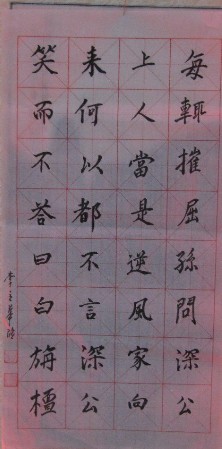 每輒摧屈孫問深公
上人當是逆風家向
来何以都不言深公
笑而不荅曰白旃檀